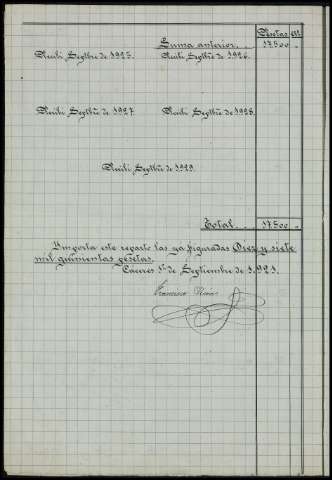 Pesetas Cts
Suma anterior . . 17.500 "
Recibí Septbre de 1925. Recibí Septbre de 1926.
Recibí Septbre de 1927. Recibí Septbre de 1928.
Recibí Septbre de 1929.
Total . . 17.500 "
Importa este reparto las ya figuradas Diez y siete
mil quinientas pesetas.
Cáceres 1º de Septiembre de 1.921.
Francisco